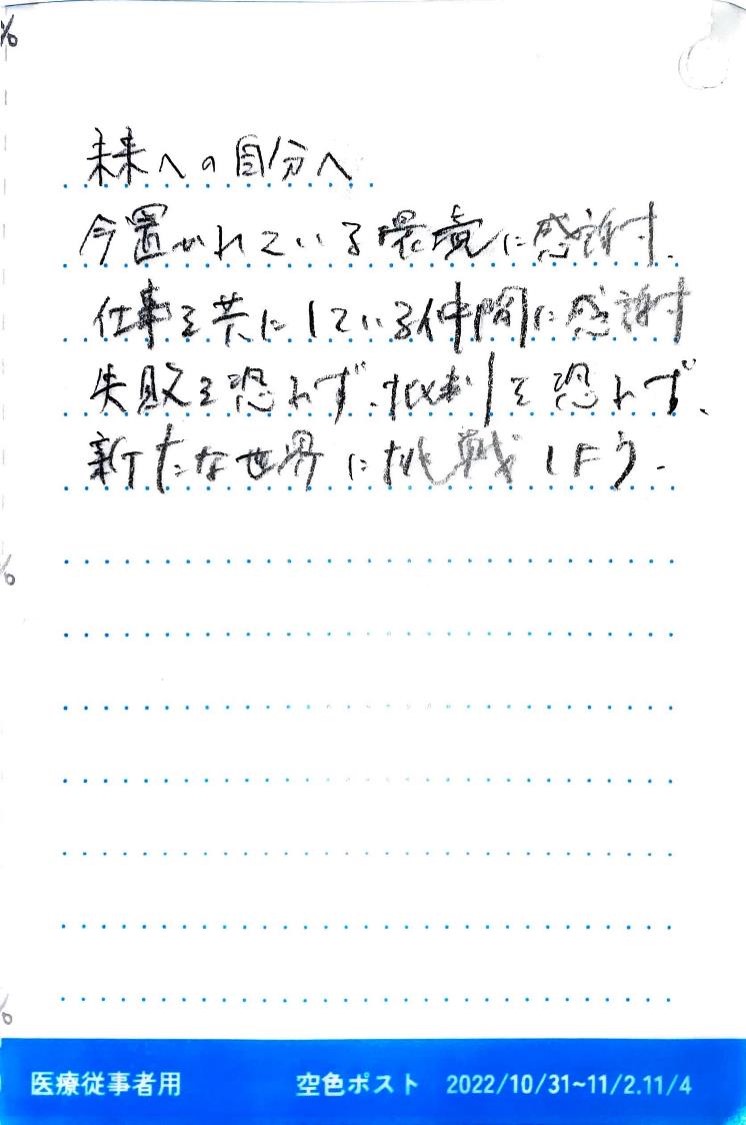 未来への自分へ
今置かれている環境に感謝.
仕事を共にしている仲間に感謝
失敗を恐れず、批判を恐れず、
新たな世界に挑戦しよう.
医療従事者用 空色ポスト 2022/10/31~11/2.11/4